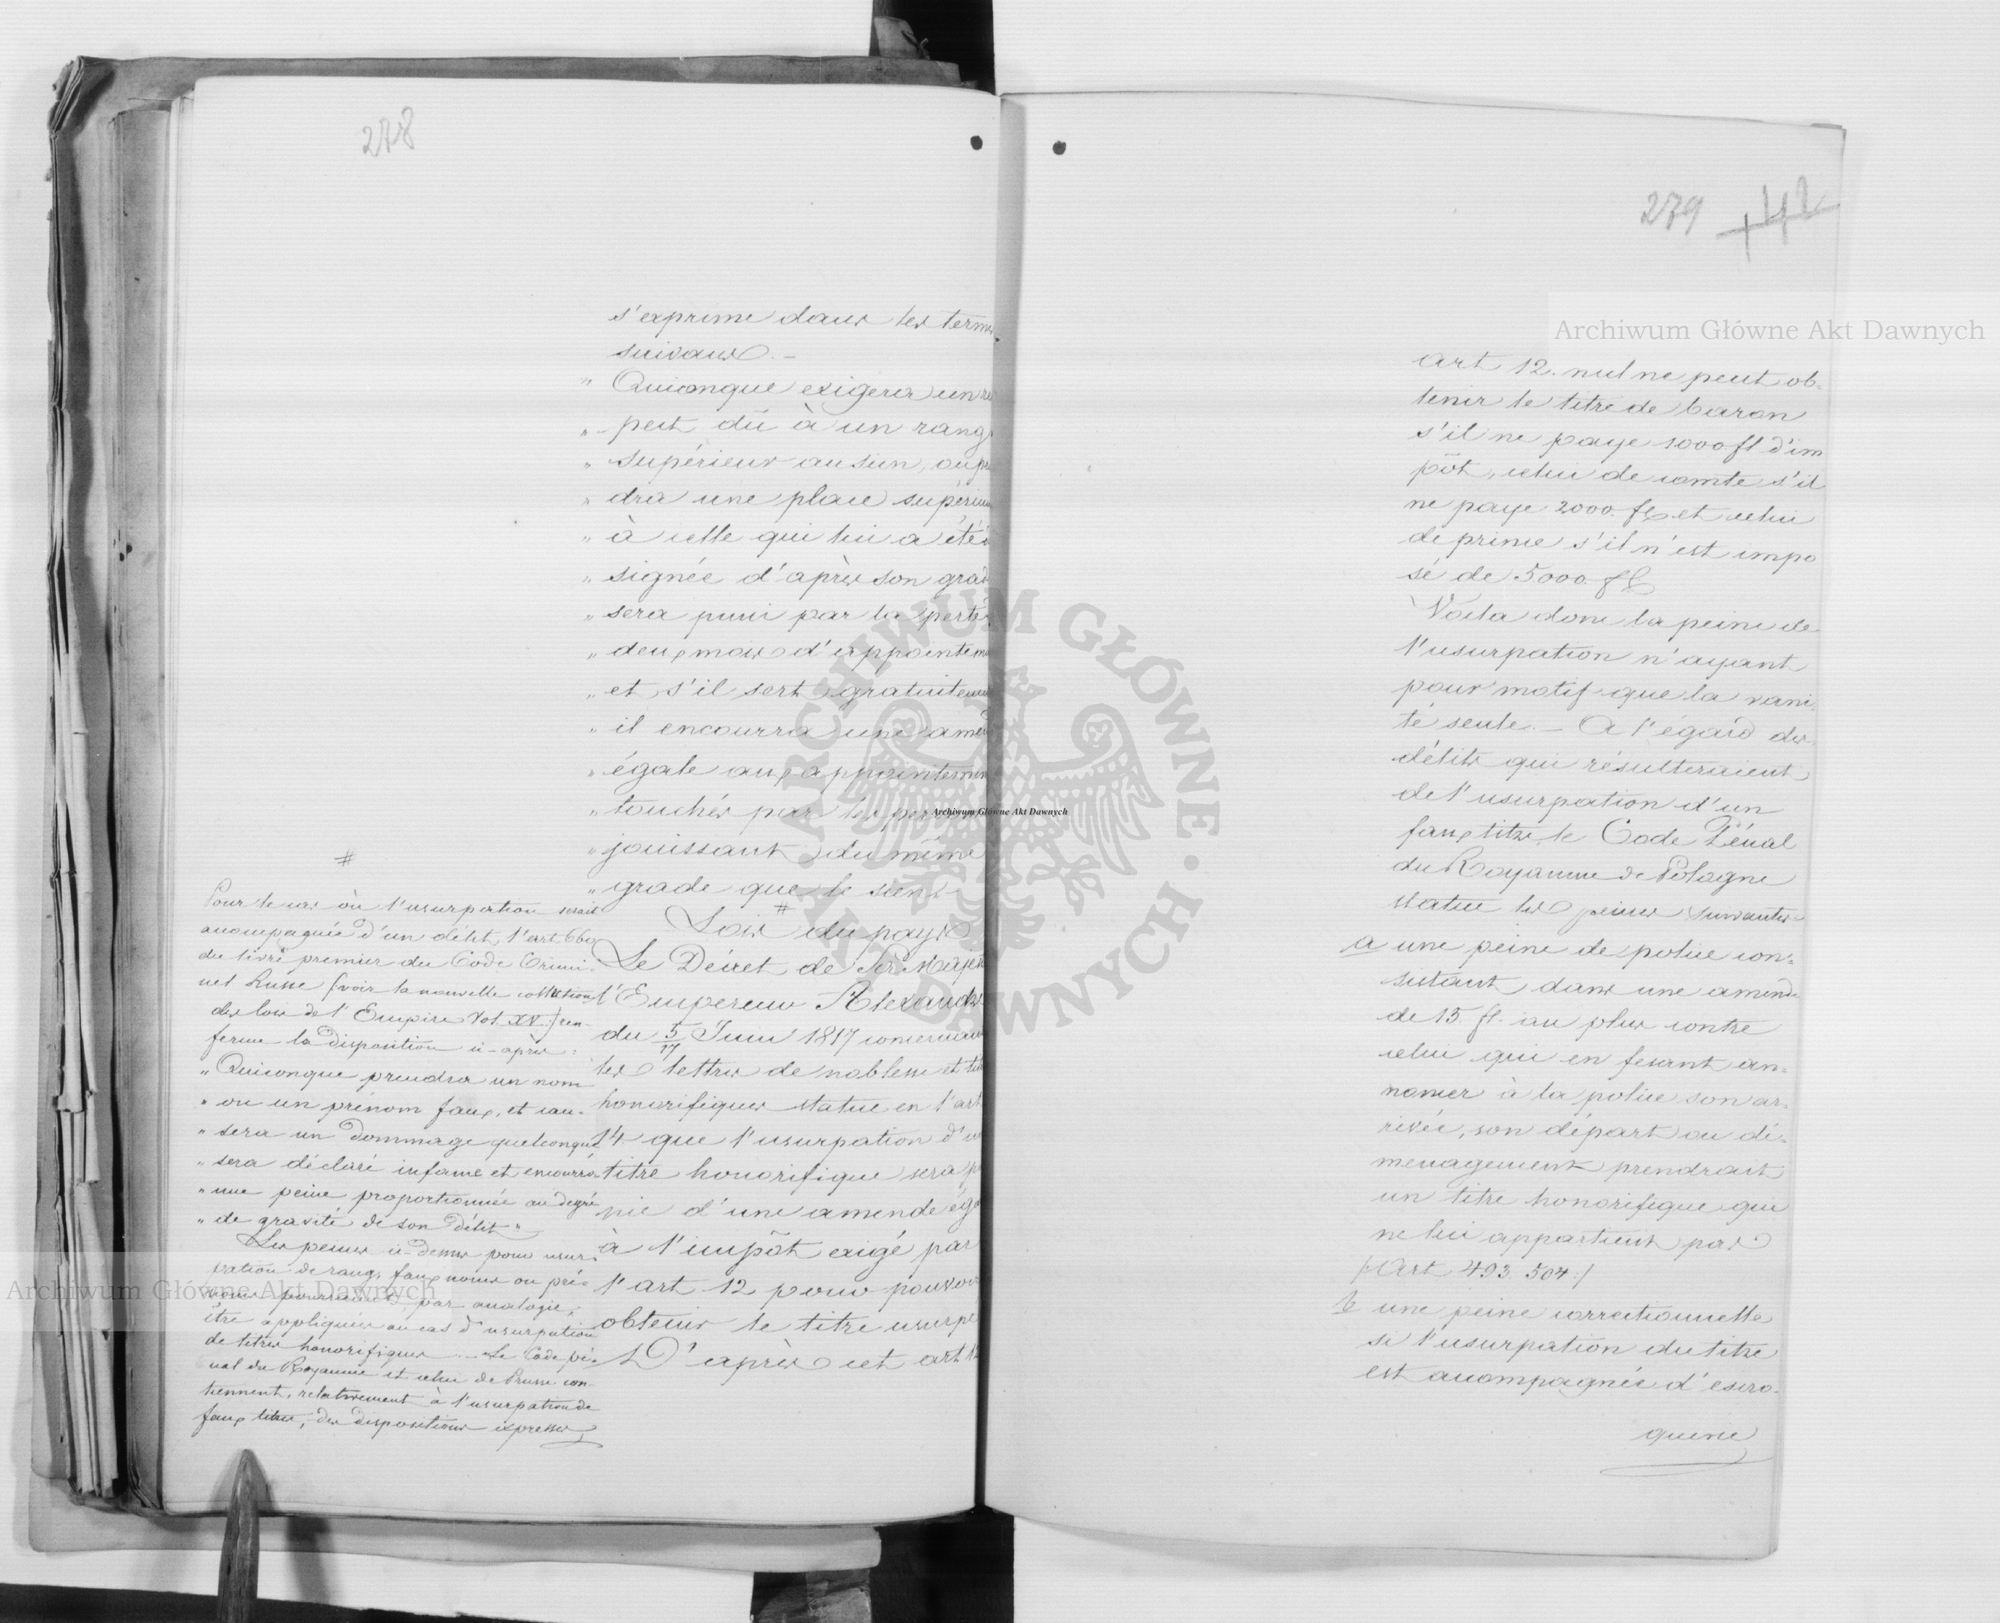 278
s'exprime dans les termes
suivans. —
" Quiconque exigera un res
" pect dû à un rang
" supérieur au sien, ou pren
" dra une place supérieure
" à celle qui lui a été as
" signée d'après son grade
" sera puni par la perte de
" deux mois d'appointemens
" et s'il sert gratuitement
" il encourra une amende
" égale aux appointemens
" touchés par les personnes
" jouissant du même
" grade que le sien
#
Lois du pays
Le Décret de Sa Majesté
l'Empereur Alexandre
du 5/17 Juin 1817 concernant
les lettres de noblesse et titres
honorifiques statue en l'art
14 que l'usurpation d'un
titre honorifique sera pu
nie d'une amende égale
à l'impôt exigé par
l'art 12 pour pouvoir
obtenir le titre usurpé
D'après cet art 12
#
Pour le cas où l'usurpation serait
accompagnée d'un délit, l'art 660
du livre premier du Code Crimi-
nel Russe (voir la nouvelle collection
des lois de l'Empire Vol. XV.) ren-
ferme la disposition ci-après:
" Quiconque prendra un nom
" ou un prénom faux, et cau-
" sera un dommage quelconque
" sera déclaré infame et encourra
" une peine proportionnée au degré
" de gravité de son délit "
Les peines ci-dessus pour usur-
pation de rang, faux noms ou pré-
noms pourraient par analogie,
être appliquées au cas d'usurpation
de titres honorifiques. — Le Code pé-
nal du Royaume et celui de Prusse con-
tiennent, relativement à l'usurpation de
faux titres, des dispositions expresses
279
+42
art 12. nul ne peut ob-
tenir le titre de baron
s'il ne paye 1000 fl d'im
pôt, celui de comte s'il
ne paye 2000. fl et celui
de prince s'il n'est impo
sé de 5000. fl
Voila donc la peine de
l'usurpation n'ayant
pour motif que la vani-
té seule. — A l'égard des
délits qui résulteraient
de l'usurpation d'un
faux titre, le Code Pénal
du Royaume de Pologne
statue les peines suivantes
a une peine de police con-
sistant dans une amende
de 15. fl. au plus contre
celui qui en fesant an-
noncer à la police son ar-
rivée, son départ ou dé-
menagement prendrait
un titre honorifique qui
ne lui appartient pas
/: Art 493. 504 :/
b une peine correctionnelle
si l'usurpation du titre
est accompagnée d'escro-
querie
Archiwum Główne Akt Dawnych
Archiwum Główne Akt Dawnych
Archiwum Główne Akt Dawnych
ARCHIWUM GŁÓWNE AKT DAWNYCH